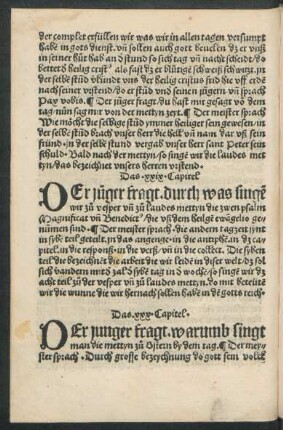 der complet erfüllen wir was wir in allen tagen versumpt
habē in gots dienst. vn̄ sollen auch gott beuelen dz er vnß
in seiner hůt hab an d stund so sich tag vn̄ nacht scheidt/ do
bettet d heilig crist als fast dz er blůtigē schweiß schwitzt. in
der selbē stūd vſundt vns der heilig cristus frid die vff erdē
nach seiner vrstend/ do er stůd vnd seinen jügern vn̄ sprach
Pax vobis. ¶ Der jüger fragt/ du hast mir gesagt vō dem
tag/ nūn sag mir von der mettyn zeyt. ¶ Der meister sprach
Wie möcht die selbige stūd ymmer heiliger sein gewesen/ in
der selbē stūd brach vnser herr die hell vn̄ nam dar vß sein
fründ. in der selbē stund vergab vnser herr sant Peter sein
schuld. Bald nach der mettyn/ so singē wir die laudes met
tyn/ das bezeichnet vnsers herren vrstend.
Das .xxix. Capitel
DEr jüger fragt. durch was singē
wir zů vesper vn̄ zů laudes mettyn die zwen psalm
Magnificat vn̄ Benedict⁹/ die vß dem heilgē ewāgelio ge
nūmen sind. ¶ Der meister sprach. die andern tagzeit sint
in sybē teil geteilt. in das angenge. in die antyphē. an dz ca
pitel. in die respons. in die verß. vn̄ in die collect. Die sybēn
teil die bezeichnēt die arbeit die wir leidē in diser welt. dz sol
sich wandern mit d zal d sybē tag in d wochē. so singē wir dz
acht teil zů der vesper vn̄ zů laudes mettyn. do mit betütē
wir die wunne die wir hernach sollen habē in dē gotts reich.
Das .xxx. Capitel.
DEr junger fragt. warumb singt
man die mettyn zů Ostern by dem tag. ¶ Der mey
ster sprach. Durch grosse bezeychnung do gott sein volck